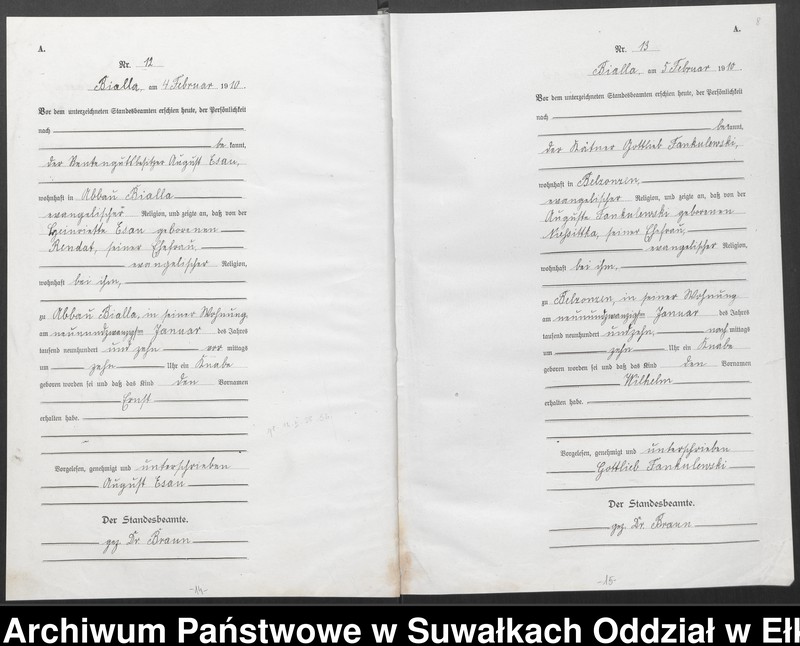 A.
Nr. 12
Bialla, am 4 Februar 1910.
Vor dem unterzeichneten Standesbeamten erschien heute, der Persönlichkeit
nach
bekannt,
der Rentengutsbesitzer August Esau,
wohnhaft in Abbau Bialla
evangelischer Religion, und zeigte an, daß von der
Heinriette Esau geborenen
Rendat, seiner Ehefrau,
evangelischer Religion,
wohnhaft bei ihm,
zu Abbau Bialla, in seiner Wohnung
am neunundzwanzigsten Januar des Jahres
tausend neunhundert und zehn vor mittags
um zehn Uhr ein Knabe
geboren worden sei und daß das Kind den Vornamen
Ernst
erhalten habe.
Vorgelesen, genehmigt und unterschrieben
August Esau
Der Standesbeamte.
gez. Dr. Braun
-14-
8
A.
Nr. 13
Bialla, am 5 Februar 1910
Vor dem unterzeichneten Standesbeamten erschien heute, der Persönlichkeit
nach
bekannt,
der Kätner Gottlieb Jankulewski,
wohnhaft in Belzonzen,
evangelischer Religion, und zeigte an, daß von der
Auguste Jankulewski geborenen
seiner Ehefrau,
evangelischer Religion,
wohnhaft bei ihm,
zu Belzonzen, in seiner Wohnung
am neunundzwanzigsten Januar des Jahres
tausend neunhundert und zehn, nach mittags
um zehn Uhr ein Knabe
geboren worden sei und daß das Kind den Vornamen
Wilhelm
erhalten habe.
Vorgelesen, genehmigt und unterschrieben
Gottlieb Jankulewski
Der Standesbeamte.
gez. Dr. Braun
-15-
Archiwum Państwowe w Suwałkach Oddział w Ełk